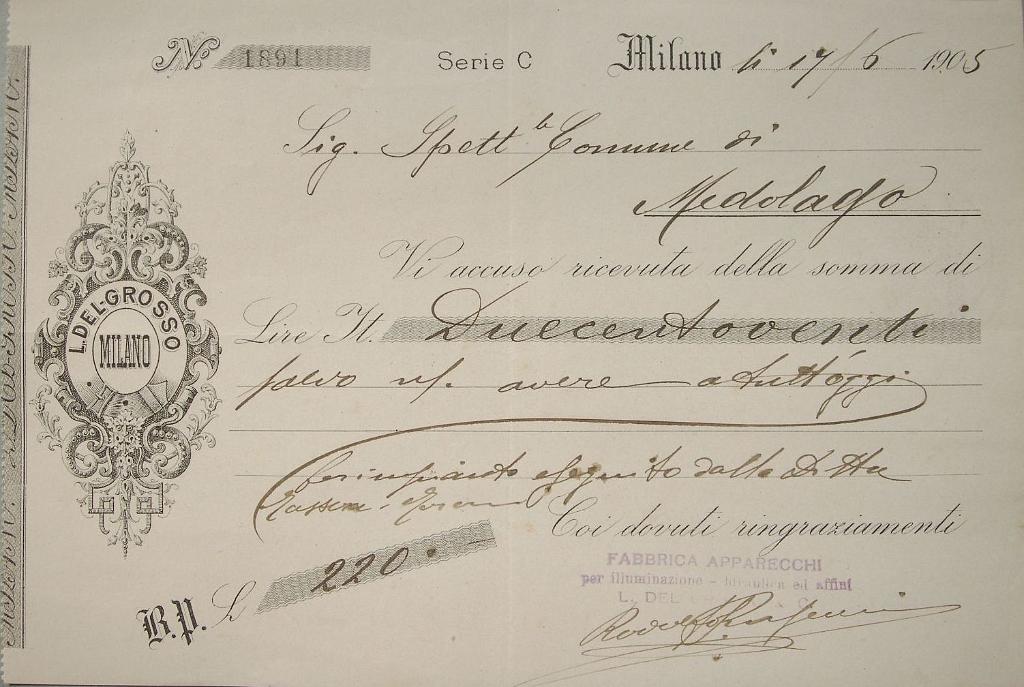 No. 1891 Serie C Milano li 17/6 1905
Sig. Spett.le Comune di
Medolago
Vi accuso ricevuta della somma di
Lire It. Duecentoventi
salvo ns/. avere a tutt'oggi
per impianto eseguito dalla Ditta
Coi dovuti ringraziamenti
B.P. £ 220.
L. DEL-GROSSO
MILANO
FABBRICA APPARECCHI
per illuminazione - idraulica ed affini
L. DEL